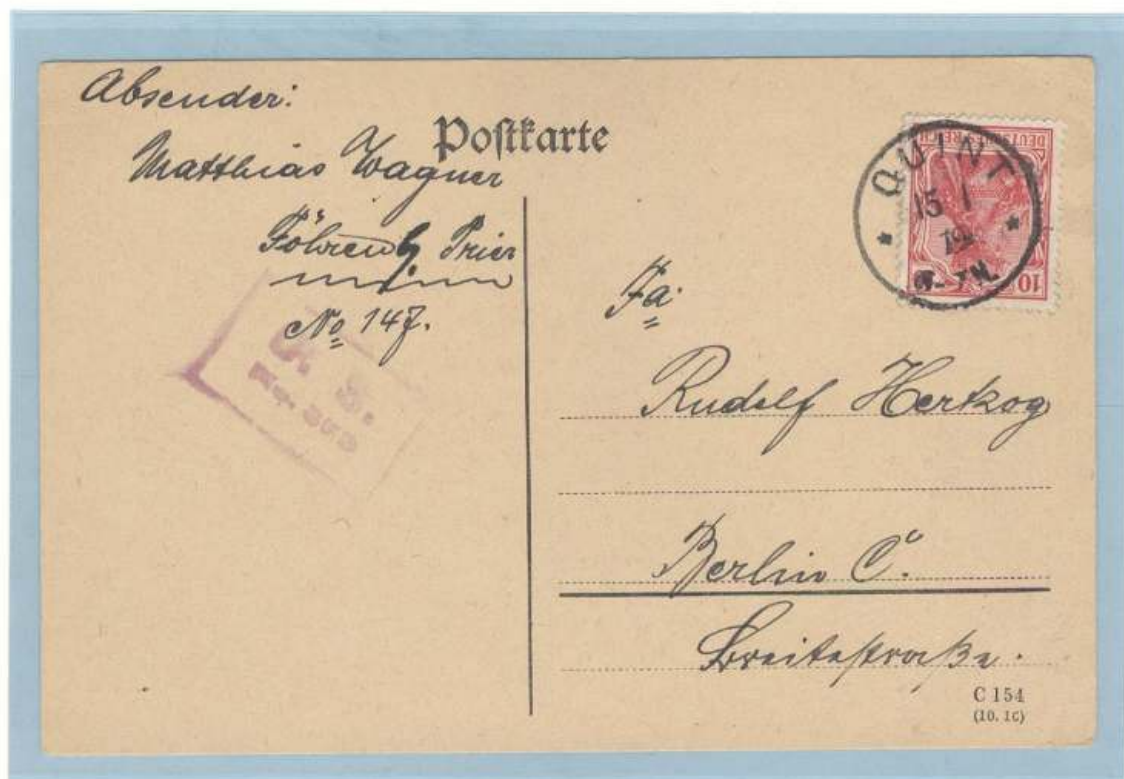 Absender:
Postkarte
Matthias Wagner
Föhren b/ Trier
No 147.
QUINT
15 1
19
DEUTSCHES REICH
10
Fa.
Rudolf Hertzog
Berlin C.
Breitestraße.
C 154
(10. 16)